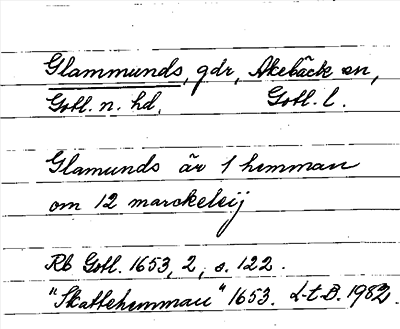 Glammunds, gdr, Akebäck sn,
Gotl. n. hd, Gotl. l.
Glamunds är 1 hemman
om 12 marckeleij
Rb Gotl. 1653, 2, s. 122.
"Skattehemman" 1653. L-t.B. 1982.